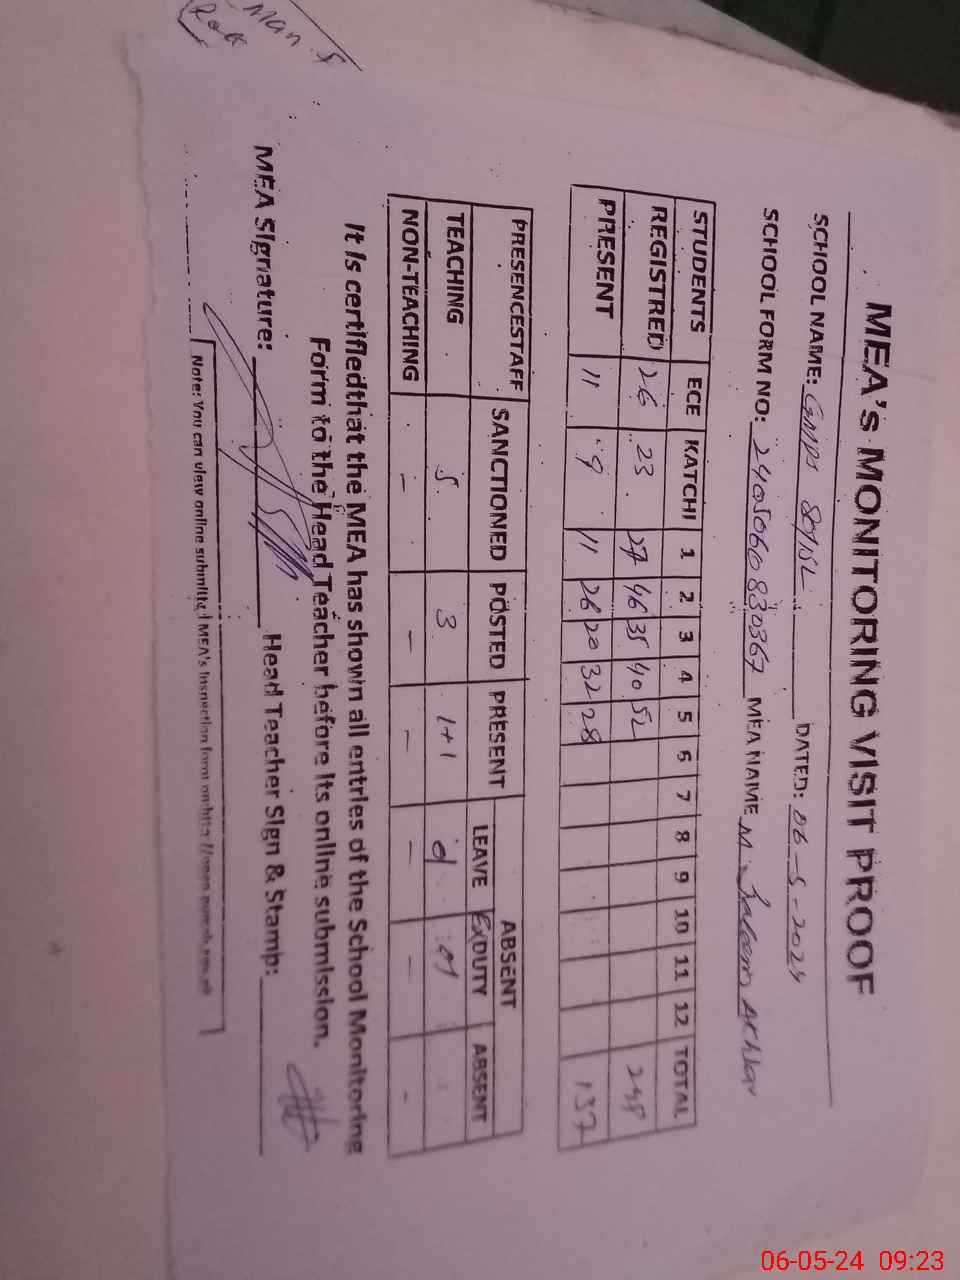 Man. &
MEA's MONITORING VISIT PROOF
SCHOOL NAME: GMPS 80/15L DATED: 06-5-2024
SCHOOL FORM NO: 2405060830367 MEA NAME M. Saleem Akhtar
STUDENTS ECE KATCHI 1 2 3 4 5 6 7 8 9 10 11 12 TOTAL
REGISTRED 26 23 27 46 35 40 52 248
PRESENT 11 9 11 26 20 32 28 137
ABSENT
PRESENCESTAFF SANCTIONED POSTED PRESENT LEAVE Ex DUTY ABSENT
TEACHING 5 3 1+1 01 01
NON-TEACHING - - - - - -
It Is certifiedthat the MEA has shown all entries of the School Monitoring
Form to the Head Teacher before its online submission.
MEA Signature: Head Teacher Sign & Stamp:
Note: You can view online submitted MEA's Inspection form on
06-05-24 09:23